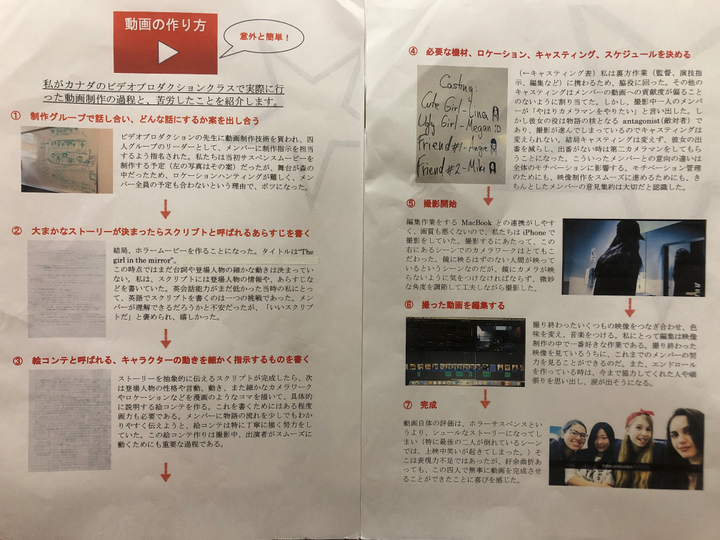 動画の作り方
意外と簡単！
私がカナダのビデオプロダクションクラスで実際に行
った動画制作の過程と、苦労したことを紹介します。
① 制作グループで話し合い、どんな話にするか案を出し合う
ビデオプロダクションの先生に動画制作技術を買われ、四
人グループのリーダーとして、メンバーに制作指示を担当
するよう指名された。私たちは当初サスペンスムービーを
制作する予定（左の写真はその案）だったが、舞台が森の
中だったため、ロケーションハンティングが難しく、メン
バー全員の予定も合わないという理由で、ボツになった。
② 大まかなストーリーが決まったらスクリプトと呼ばれるあらすじを書く
結局、ホラームービーを作ることになった。タイトルは"The
girl in the mirror"。
この時点ではまだ台詞や登場人物の細かな動きは決まってい
ない。私は、スクリプトには登場人物の情報や、あらすじな
どを書いていた。英会話能力がまだ低かった当時の私にとっ
て、英語でスクリプトを書くのは一つの挑戦であった。メン
バーが理解できるだろうかと不安だったが、「いいスクリプ
トだ」と褒められ、嬉しかった。
③ 絵コンテと呼ばれる、キャラクターの動きを細かく指示するものを書く
ストーリーを抽象的に伝えるスクリプトが完成したら、次
は登場人物の性格や言動、動き、また細かなカメラワーク
やロケーションなどを漫画のようなコマを描いて、具体的
に説明する絵コンテを作る。これを書くためにはある程度
画力も必要である。メンバーに物語の流れを少しでもわか
りやすく伝えようと、絵コンテは特に丁寧に描く努力をし
ていた。この絵コンテ作りは撮影中、出演者がスムーズに
動くためにも重要な過程である。
④ 必要な機材、ロケーション、キャスティング、スケジュールを決める
Casting:
Cute Girl - Lina
Ugly Girl - Megan :D
Friend #1 - Angie
Friend #2 - Miki
（←キャスティング表）私は裏方作業（監督、演技指
示、編集など）に携わるため、脇役に回った。その他の
キャスティングはメンバーの動画への貢献度が偏ること
のないように割り当てた。しかし、撮影中一人のメンバ
ーが「やはりカメラマンをやりたい」と言い出した。し
かし彼女の役は物語の核となる antagonist(敵対者) で
あり、撮影が進んでしまっているのでキャスティングは
変えられない。結局キャスティングは変えず、彼女の出
番を減らし出番がない時は第二カメラマンをしてもら
うことになった。こういったメンバーとの意向の違いは
全体のモチベーションに影響する。モチベーション管理
のためにも、映像制作をスムーズに進めるためにも、き
ちんとしたメンバーの意見集約は大切だと認識した。
⑤ 撮影開始
編集作業をする MacBook との連携がしやす
く、画質も悪くないので、私たちは iPhone で
撮影をしていた。撮影するにあたって、この
右にあるシーンでのカメラワークはとてもこ
だわった。鏡に映るはずのない人間が映って
いるというシーンなのだが、鏡にカメラが映
らないように気をつけなければならず、微妙
な角度を調節して工夫しながら撮影した。
⑥ 撮った動画を編集する
撮り終わったいくつもの映像をつなぎ合わせ、色
味を変え、音楽をつける。私にとって編集は映像
制作の中で一番好きな作業である。撮り終わった
映像を見ているうちに、これまでのメンバーの努
力を見ることができるのだ。また、エンドロール
を作っている時は、今まで協力してくれた人や頑
張りを思い出し、涙が出そうになる。
⑦ 完成
動画自体の評価は、ホラーサスペンスと
いうより、シュールなストーリーになってし
まい（特に最後の二人が倒れているシーン
では、上映中笑いが起きてしまった。）そ
こは表現力不足ではあったが、紆余曲折あ
っても、この四人で無事に動画を完成させ
ることができたことに喜びを感じた。